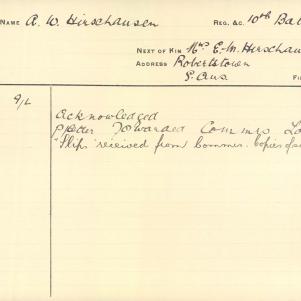 NAME A. W. Hirschausen REG. &C. 10th Ba
NEXT OF KIN Mrs E. M. Hirschau
ADDRESS Robertstown
S. Aus.
A/L
Acknowledged
forwarded Comms
"Slips" received from Commr. Copies of